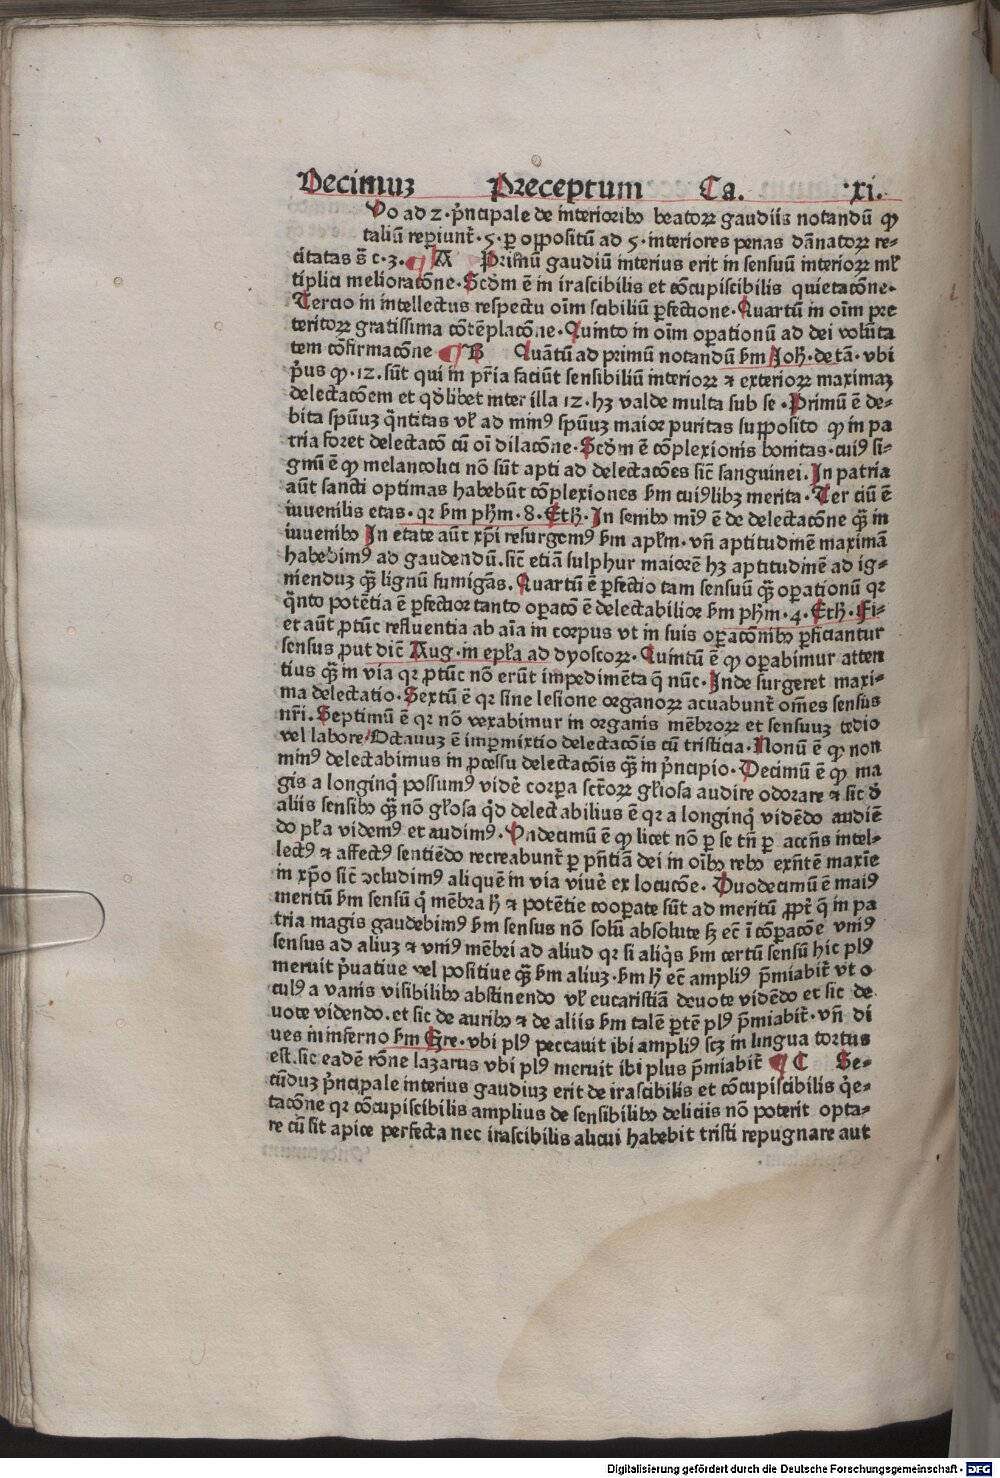 Decimuꝫ Preceptum Ca. .xi.
Uo ad 2·p̄ncipale de interioribꝰ beatoꝝ gaudiis notandū ꝙ
taliū reꝑiunt᷑·5·ꝑ oꝑpositū ad 5·interiores penas dānatoꝝ re⸗
citatas s̄ c·3·¶ A Primū gaudiū interius erit in sensuū interioꝝ ml̄
tiplici melioratōne·Scd̄m ē in irascibilis et cōcupiscibilis quietatōne·
Tercio in intellectus respectu oīm scibiliū ꝑfectione·Quartū in oīm pre
teritoꝝ gratissima cōtēplatōne·Quinto in oīm oꝑationū ad dei volūta
tem cōfirmatōne ¶ B Quātū ad primū notandū ẜm Joh̄·de tā·vbi
p̄us ꝙ·12·sūt qui in pr̄ia faciūt sensibiliū interioꝝ ⁊ exterioꝝ maximaꝫ
delectatōem et qd̄libet inter illa 12·hꝫ valde multa sub se·Primū ē de⸗
bita spūuꝫ q̄ntitas vl̄ ad minꝰ spūuꝫ maior puritas suꝑposito ꝙ in pa
tria foret delectatō cū oī dilatōne·Scd̄m ē cōplexionis bonitas·cuiꝰ si⸗
gnū ē ꝙ melancolici nō sūt apti ad delectatōes sic̄ sanguinei·In patria
aūt sancti optimas habebūt cōplexiones ẜm cuiꝰlibꝫ merita·Ter ciū ē
iuuenilis etas·qꝛ ẜm ph̄m·8·Eth̄·In senibꝰ miꝰ ē de delectatōne q̄ꝫ in
iuuenibꝰ In etate aūt xp̄i resurgemꝰ ẜm apl̄m·vn̄ aptitudinē maximā
habebimꝰ ad gaudendū·sic̄ etiā sulphur maiorē hꝫ aptitudinē ad ig⸗
niendūꝫ q̄ꝫ lignū fumigās·Quartū ē ꝑfectio tam sensuū q̄ꝫ oꝑationū qꝛ
q̄nto potētia ē ꝑfectior tanto oꝑatō ē delectabilior ẜm ph̄m·4·Eth̄·Fi⸗
et aūt ꝓtūc refluentia ab aīa in corpus vt in suis oꝑatōnibꝰ ꝑficiantur
sensus ꝓut dic̄ Aug·in epl̄a ad dyoscoꝝ·Quintū ē ꝙ oꝑabimur atten
tius q̄ꝫ in via qꝛ ꝓtūc nō erūt impedimēta q̄ nūc·Inde surgeret maxi⸗
ma delectatio·Sextū ē qꝛ sine lesione organoꝝ acuabunt᷑ om̄es sensus
nr̄i·Septimū ē qꝛ nō vexabimur in organis mēbroꝝ et sensuuꝫ tedio
vel labore Octauuꝫ ē imꝑmixtio delectatōis cū tristicia·Nonū ē ꝙ non
minꝰ delectabimus in ꝓcessu delectatōis q̄ꝫ in p̄ncipio·Decimū ē ꝙ ma
gis a longinq̄ possumꝰ videꝛ̄ corꝑa sct̄oꝝ gl̄iosa audire odorare ⁊ sic d̄
aliis sensibꝰ q̄ꝫ nō gl̄osa q̄d delectabilius ē qꝛ a longinq̄ vidēdo audiē
do pl̄a videmꝰ et audimꝰ·Undecimū ē ꝙ licet nō ꝑ se tn̄ ꝑ accn̄s intel⸗
lectꝰ ⁊ affectꝰ sentiēdo recreabunt᷑ ꝑ pn̄tiā dei in oībꝰ rebꝰ exn̄tē maxīe
in xp̄o sic̄ ↄcludimꝰ aliquē in via viueꝛ̄ ex locucōe·Duodecimū ē maiꝰ
meritū ẜm sensū q̄ mēbra h̄ ⁊ potētie cooꝑate sūt ad meritū ꝓpt᷑ q̄ in pa
tria magis gaudebimꝰ ẜm sensus nō solū absolute ẜ ec̄ ī cōꝑatōe vniꝰ
sensus ad aliuꝫ ⁊ vniꝰ mēbri ad aliud qꝛ si aliq̄s ẜm certū sensū hic plꝰ
meruit p̄uatiue vel positiue q̄ꝫ ẜm aliuꝫ·ẜm h̄ ec̄ ampliꝰ p̄miabit᷑ vt o
culꝰ a vanis visibilibꝰ abstinendo vl̄ eucaristiā deuote vidēdo et sic de
uote videndo·et sic de auribꝰ ⁊ de aliis ẜm talē ꝑtē plꝰ p̄miabit᷑·vn̄ di
ues in inferno ẜm Gre·vbi plꝰ peccauit ibi ampliꝰ scꝫ in lingua tortus
est·sic eadē rōne lazarus vbi plꝰ meruit ibi plus p̄miabit᷑ ¶ C Se⸗
cūduꝫ p̄ncipale interius gaudiuꝫ erit de irascibilis et cōcupiscibilis q̄e⸗
tatōne qꝛ cōcupiscibilis amplius de sensibilibꝰ deliciis nō poterit opta⸗
re cū sit apice perfecta nec irascibilis alicui habebit tristi repugnare aut
Digitalisierung gefördert durch die Deutsche Forschungsgemeinschaft - DFG